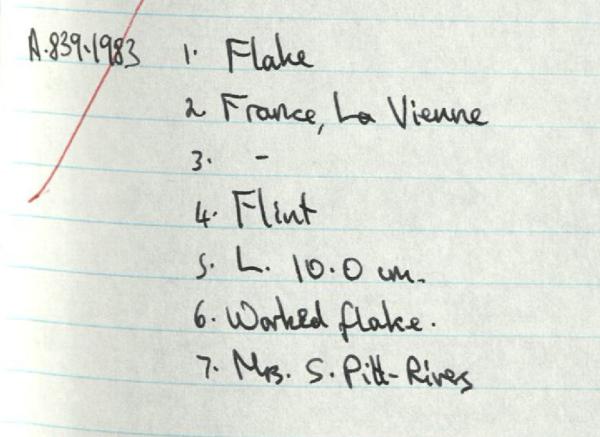 A.839.1983 1. Flake
2 France, La Vienne
3. -
4. Flint
5. L. 10.0 cm.
6. Worked flake.
7. Mrs. S. Pitt-Rivers